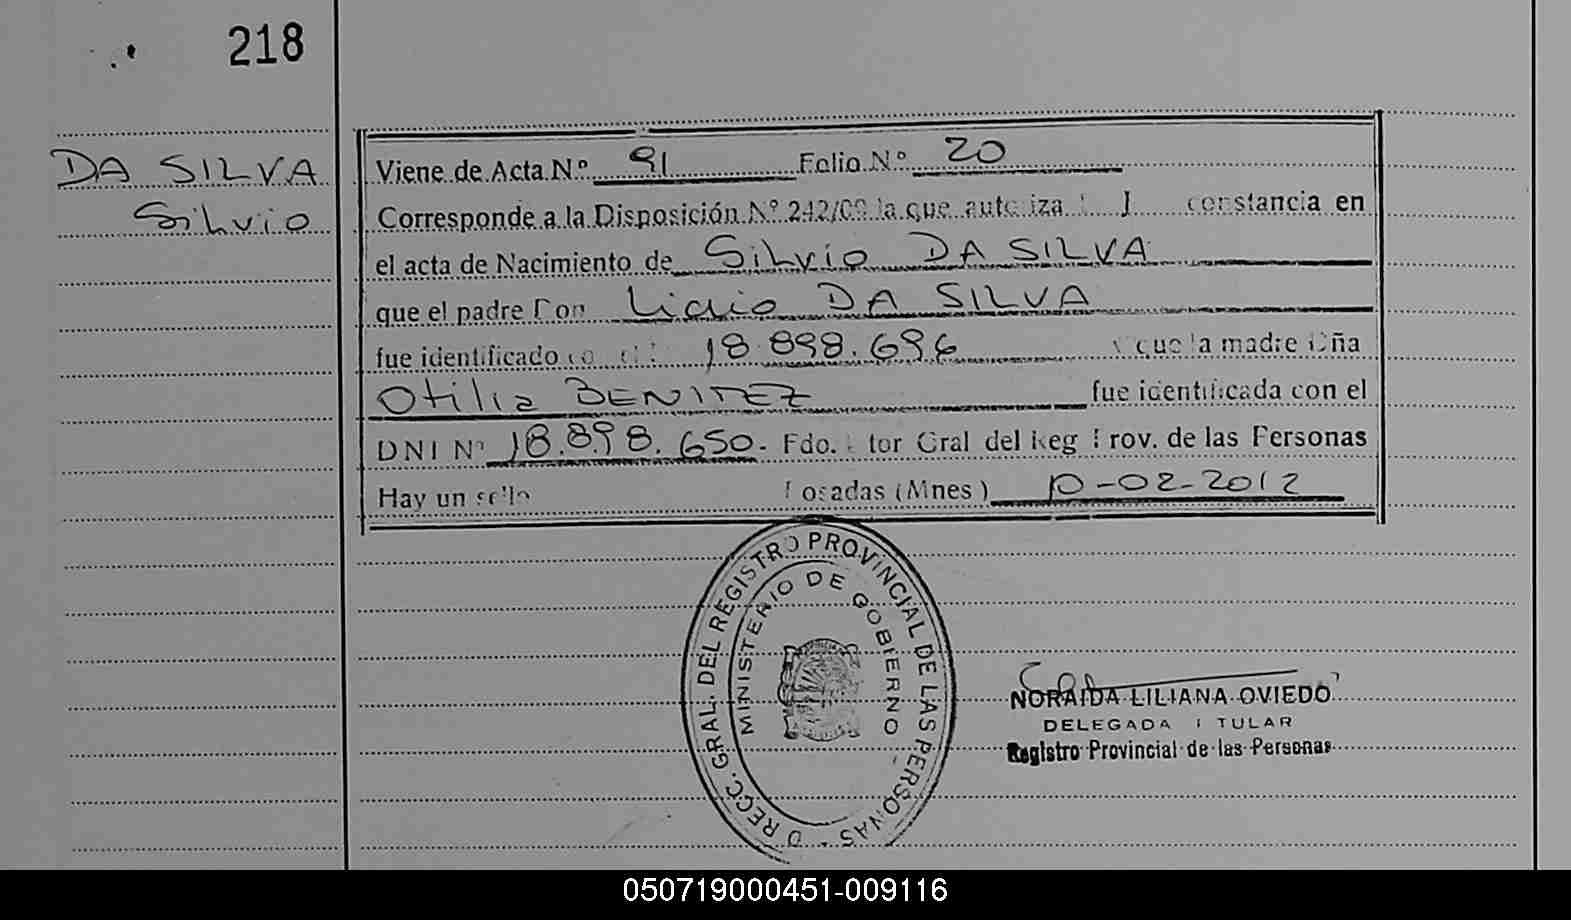 218
DA SILVA
Silvio
Viene de Acta N° 91 Folio N° 20
Corresponde a la Disposición N° 242/09 la que autoriza constancia en
el acta de Nacimiento de Silvio DA SILVA
que el padre Don DA SILVA
fue identificado 18.898.696 que la madre Dña
Otilia BENITEZ fue identificada con el
DNI N° 18.898.650.- Fdo. tor Gral del Reg Prov. de las Personas
Hay un sello Posadas (Mnes) 10-02-2012
DIRECC. GRAL. DEL REGISTRO PROVINCIAL DE LAS PERSONAS
MINISTERIO DE GOBIERNO
NORAIDA LILIANA OVIEDO
DELEGADA TITULAR
Registro Provincial de las Personas
050719000451-009116